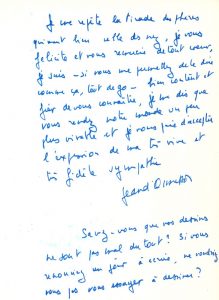 Je me répète la tirade des phares
qui vaut bien celle des nez, je vous
félicite et vous remercie de tout cœur,
je suis – si vous me permettez de le dire
comme ça, tout de go – bien content et
fier de vous connaître, je me dis que
vous rendez notre monde un peu
plus vivable et je vous prie d'accepter
l'expression de ma très vive et
très fidèle sympathie
Jean d'Ormesson
Savez-vous que vos dessins
ne sont pas mal du tout ? Si vous
renoncez un jour à écrire, ne voudriez
vous pas vous essayer à dessiner ?